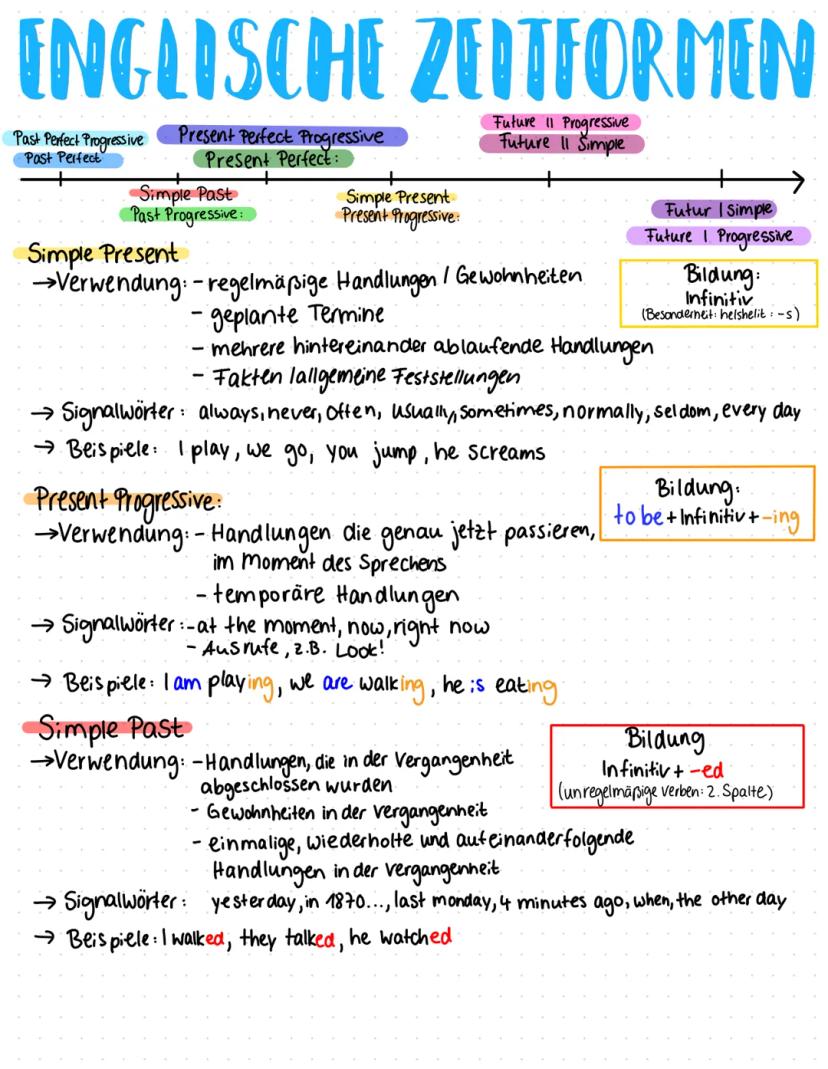 ENGLISCHE ZEITFORMEN
Future II Progressive
Past Perfect Progressive Present Perfect Progressive Future II Simple
Past Perfect Present Perfect:
Simple Past Simple Present
Past Progressive: Present Progressive: Futur I Simple
Future I Progressive
Simple Present
→Verwendung: - regelmäßige Handlungen / Gewohnheiten
- geplante Termine
- mehrere hintereinander ablaufende Handlungen
- Fakten /allgemeine Feststellungen
Bildung:
Infinitiv
(Besonderheit: he/she/it : -s)
→ Signalwörter : always, never, often, usually, sometimes, normally, seldom, every day
→ Beispiele: I play, we go, you jump, he screams
Present Progressive:
→Verwendung: - Handlungen die genau jetzt passieren,
im Moment des Sprechens
- temporäre Handlungen
Bildung:
to be + Infinitiv + -ing
→ Signalwörter :-at the moment, now, right now
- Ausrufe, z.B. Look!
→ Beispiele: I am playing, we are walking, he is eating
Simple Past
→Verwendung: -Handlungen, die in der Vergangenheit
abgeschlossen wurden
- Gewohnheiten in der Vergangenheit
- einmalige, wiederholte und aufeinanderfolgende
Handlungen in der Vergangenheit
Bildung
Infinitiv + -ed
(unregelmäßige Verben: 2. Spalte)
→ Signalwörter: yesterday, in 1870..., last monday, 4 minutes ago, when, the other day
→ Beispiele: I walked, they talked, he watched